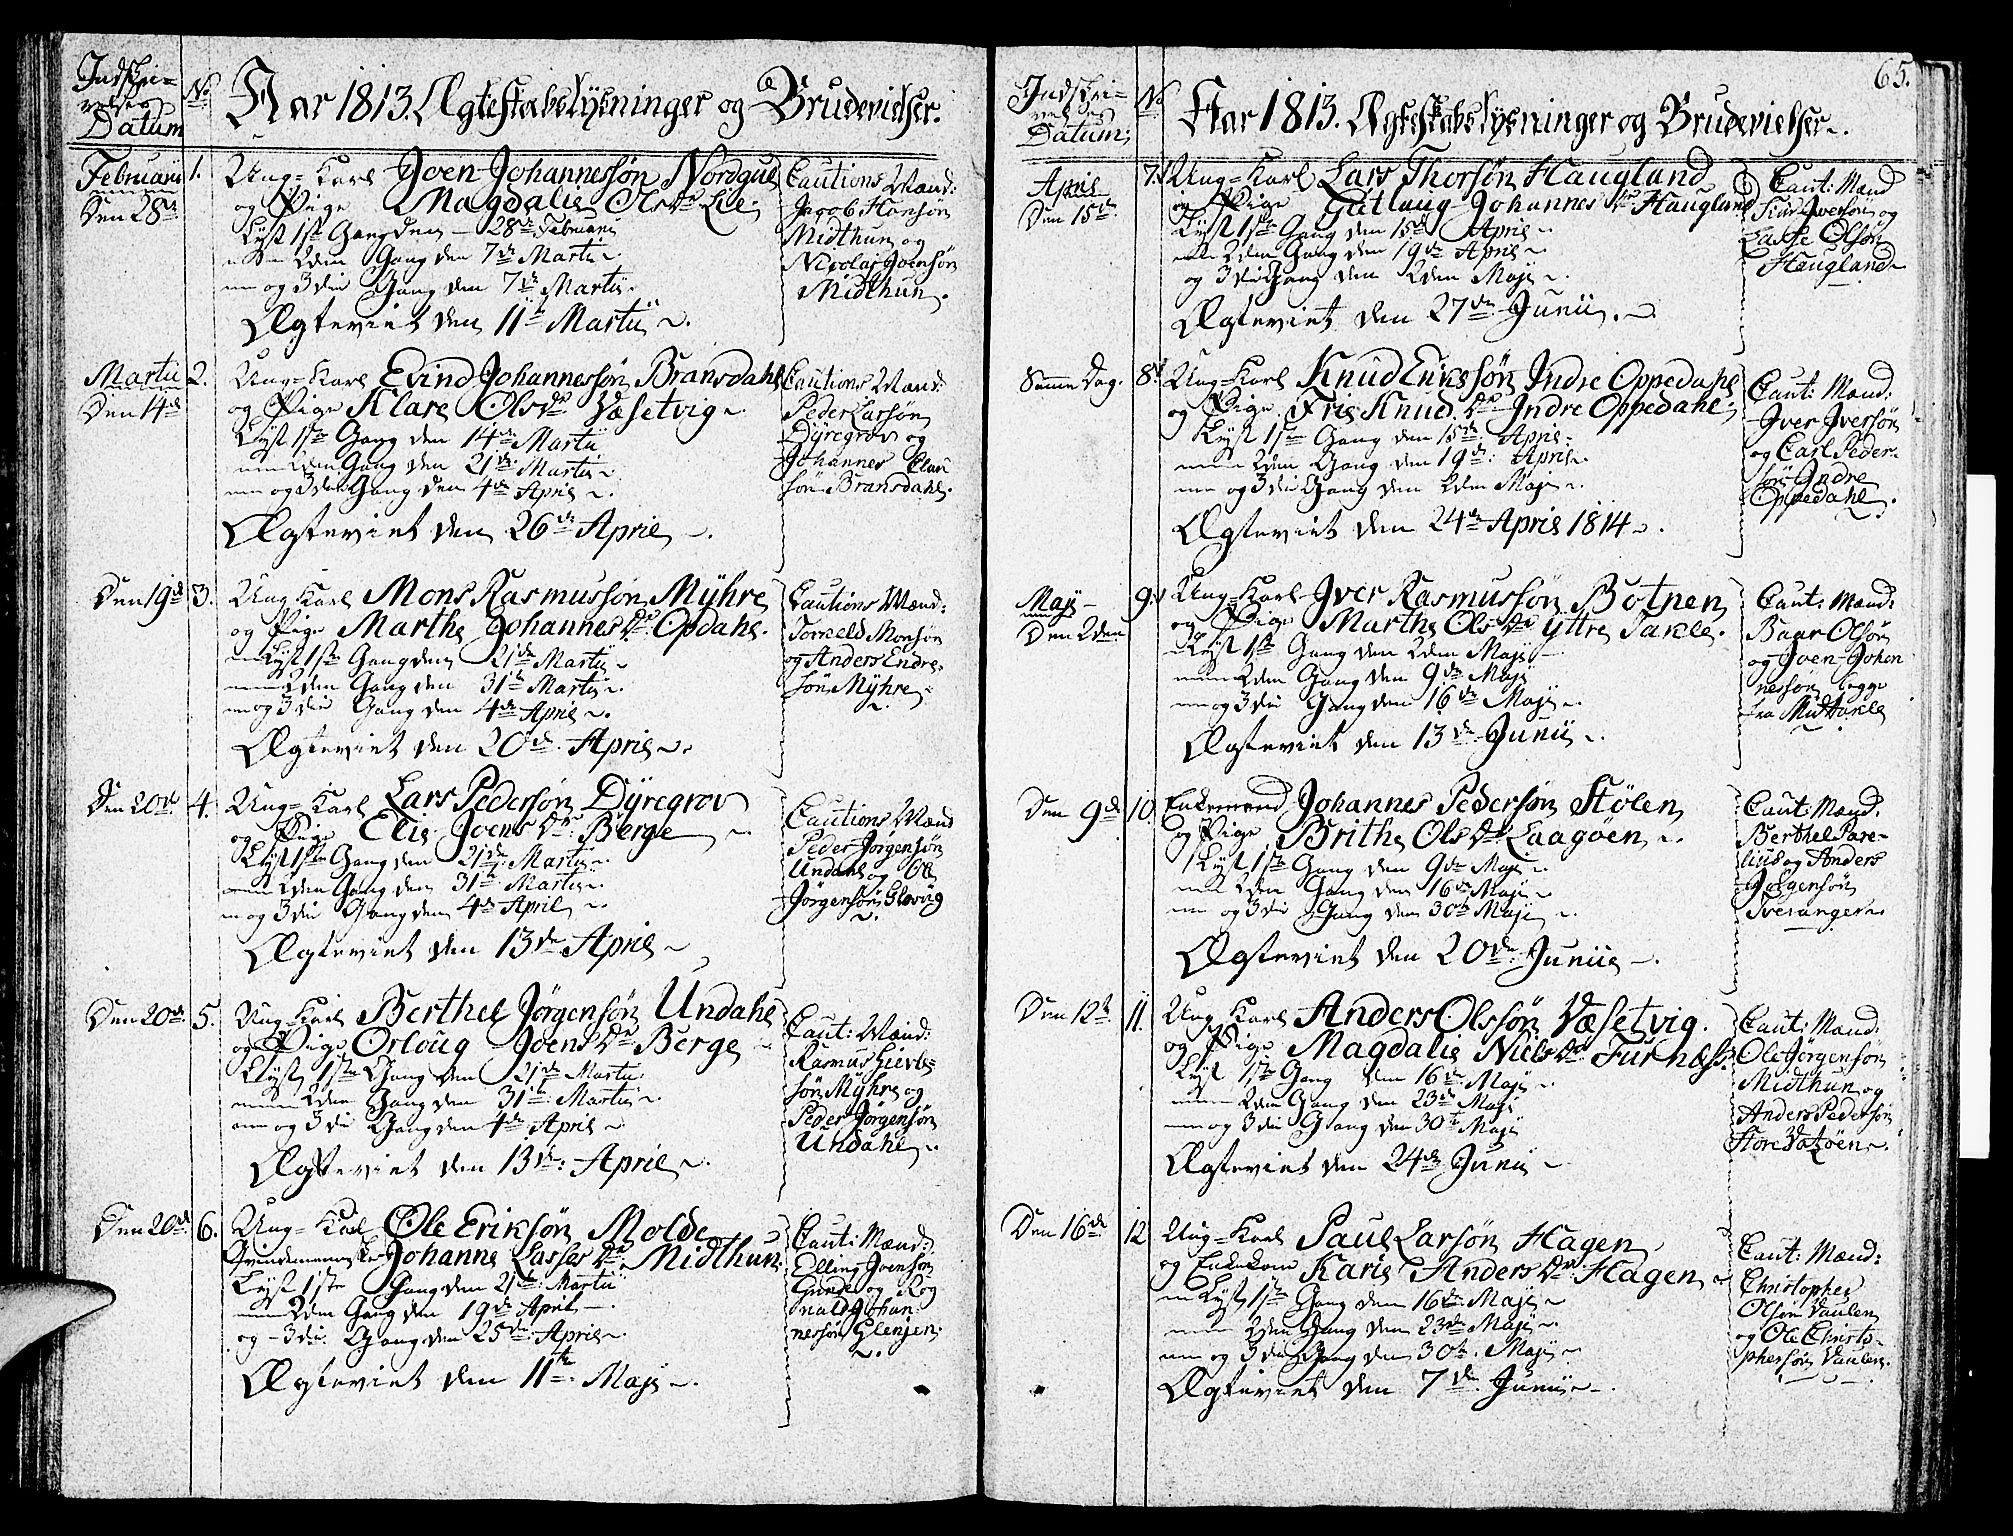 Indskri=
velses
Datum
No
Aar 1813. Ægteskabslysninger og Brudevielser.
Februarii
Den 28de
1.
Ung=Karl Joen Johannessøn Nordgul
og Pige Magdalis Olsdr Lie
Lyst 1ste Gang den 28de Februarii
2den Gang den 7de Martii
og 3die Gang den 7de Martii.
Ægteviet den 11te Martii
Cautions Mænd:
Jacob Hansøn
Midthun og
Nicolai Joensøn
Midthun.
Martii
Den 14de
2.
Ung=Karl Evind Johannessøn Bransdahl
og Pige Klare Olsdr Væsetvig
Lyst 1ste Gang den 14de Martii
2den Gang den 21de Martii
og 3die Gang den 4de April
Ægteviet den 26de April
Cautions Mænd:
Peder Larsøn
Dyregrov og
Johannes
søn Bransdahl.
Den 19de
3.
Ung Karl Mons Rasmussøn Myhre
og Pige Marthe Johannesdr Opdahl.
Lyst 1ste Gang den 21de Martii
2den Gang den 31te Martii
og 3die Gang den 4de April
Ægteviet den 20de April
Cautions Mænd:
Torkeld Monsøn
og Anders Endre=
søn Myhre
Den 20de
4.
Ung=Karl Lars Pedersøn Dyregrov
og Pige Elie Joensdr Berge
Lyst 1ste Gang den 21de Martii
2den Gang den 31te Martii
og 3die Gang den 4de April
Ægteviet den 13de April
Cautions Mænd
Peder Jørgensøn
Undahl og Ole
Jørgensøn
Den 20de
5.
Ung=Karl Berthel Jørgensøn Undahl
og Pige Orloug Joensdr Berge
Lyst 1ste Gang den 21de Martii
2den Gang den 31te Martii
og 3die Gang den 4de April
Ægteviet den 13de April
Caut: Mænd:
Rasmus
søn Myhre og
Peder Jørgensøn
Undahl
Den 20de
6.
Ung=Karl Ole Eriksøn Molde
Qvindemenneske Johanne Lassesdr Midthun.
Lyst 1ste Gang den 21de Martii
2den Gang den 19de April
og 3die Gang den 25de April
Ægteviet den 11te Maji
Caut: Mænd:
Elling Joensøn
og Rog=
nald Johan=
nessøn Glenjen.
65.
Indskri=
velses
Datum:
No
Aar 1813. Ægteskabslysninger og Brudevielser.
April
Den 15de
7.
Ung=Karl Lars Thorsøn Haugland
og Pige Gutlaug Johannesdr Haugland
Lyst 1ste Gang den 15de April
2den Gang den 19de April
og 3die Gang den 2den Maji
Ægteviet den 27de Junii.
Caut: Mænd
Iversøn og
Lasse Olsøn
Haugland
Samme Dag.
8.
Ung=Karl Knud Erikssøn Indre Oppedahl
og Pige Fris Knudsdr Indre Oppedahl
Lyst 1ste Gang den 15de April
2den Gang den 19de April
og 3die Gang den 2den Maji
Ægteviet den 24de April 1814
Caut: Mænd:
Iver Iversøn
og Carl Peder=
søn Indre
Oppedahl.
Maji
Den 2den
9.
Ung=Karl Iver Rasmussøn Botnen
og Pige Marthe Olsdr Yttre Takle.
Lyst 1ste Gang den 2den Maji
2den Gang den 9de Maji
og 3die Gang den 16de Maji
Ægteviet den 13de Junii
Caut: Mænd:
Baar Olsøn
og Joen Johan
nessøn begge
fra Midtakle
Den 9de
10.
Enkemand Johannes Pedersøn Stølen
og Pige Brithe Olsdr Laagøen
Lyst 1ste Gang den 9de Maji
2den Gang den 16de Maji
og 3die Gang den 30te Maji
Ægteviet den 20de Junii
Caut: Mænd.
Berthel Pare=
lius og Anders
Tveranger
Den 12te
11.
Ung Karl Anders Olssøn Væsetvig.
og Pige Magdalis Nielsdr Furnæss.
Lyst 1ste Gang den 16de Maji
2den Gang den 23de Maji
og 3die Gang den 30te Maji
Ægteviet den 24de Junii
Caut: Mænd:
Ole Jørgensøn
Midthun og
Anders Pedersøn
Store Batøen
Den 16de
12
Ung=Karl Paul Larsøn Hagen
og Enkekone Karie Andersdr Hagen
Lyst 1ste Gang den 16de Maji
2den Gang den 23de Maji
og 3die Gang den 30te Maji
Ægteviet den 7de Junii
Caut: Mænd:
Christopher
Olsøn Vaulen
og Ole Christo=
phersøn Vaulen.